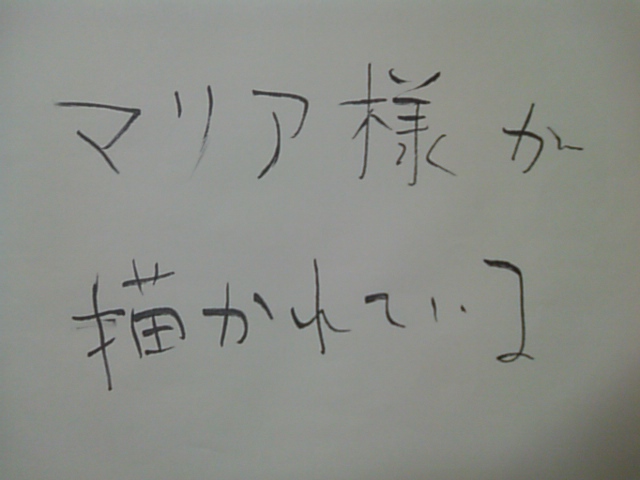 マリア様が
描かれている